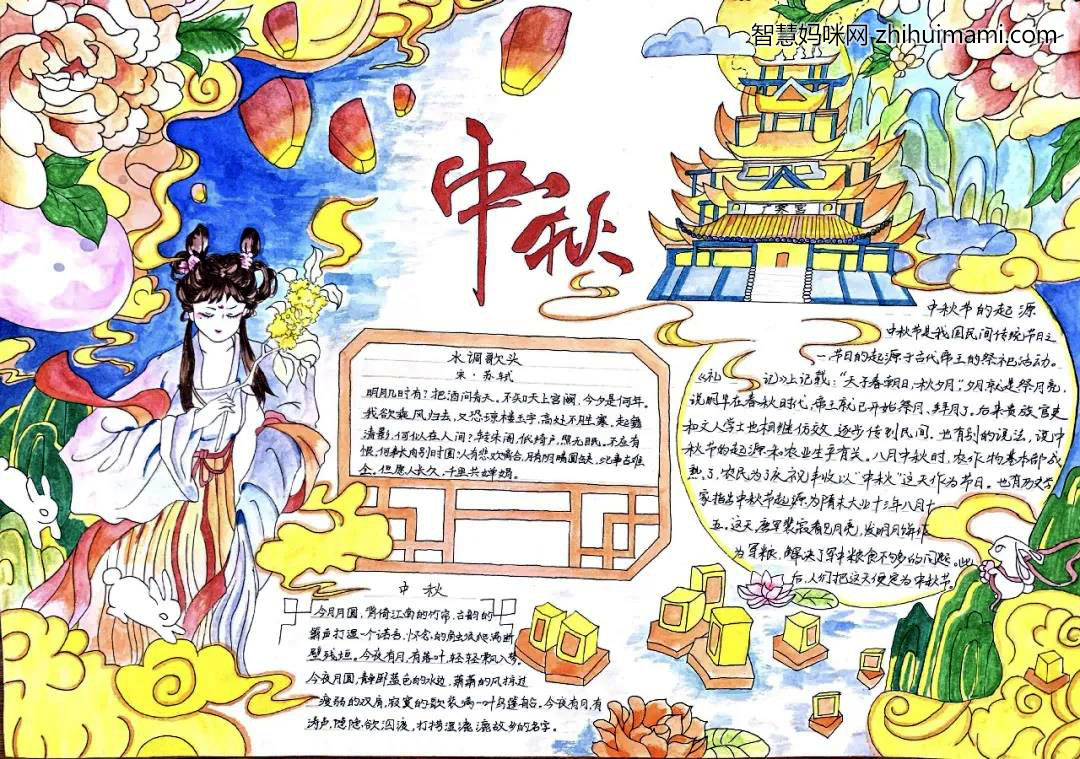 智慧妈咪网 zhihuimami.com
中秋
广寒宫
水调歌头
宋·苏轼
明月几时有?把酒问青天。不知天上宫阙,今夕是何年。
我欲乘风归去,又恐琼楼玉宇,高处不胜寒,起舞
清影,何似在人间?转朱阁,低绮户,照无眠。不应有
恨,何事长向别时圆?人有悲欢离合,月有阴晴圆缺,此事古难
全。但愿人长久,千里共婵娟。
中秋节的起源
中秋节是我国民间传统节日之
一节日的起源于古代帝王的祭祀活动。
《礼记》上记载:“天子春朝日,秋夕月”,夕月就是祭月亮,
说明早在春秋时代,帝王就已开始祭月、拜月了。后来贵族官吏
和文人学士也相继仿效,逐步传到民间。也有别的说法,说中
秋节的起源和农业生产有关。八月中秋时,农作物基本都成
熟了,农民为了庆祝丰收,以“中秋”这天作为节日。也有历史学
家指出中秋节起源为隋末大业十三年八月十
五,这天唐军裴寂看见月亮,发明月饼作
为军粮,解决了军中粮食不够的问题。此
后,人们把这天便定为中秋节。
中秋
今月月圆,背倚江南的竹帘,古韵的
箫声打湿一个话语,怀念的
壁残垣。今夜有月,有落叶,轻轻飘入梦。
今夜月圆,静卧蓝色的水边,潇潇的风掠过
瘦弱的双肩,寂寞的歌装满一叶乌篷船。今夜有月,有
涛声,隐隐欲泅渡,打捞湿漉漉故乡的名字。